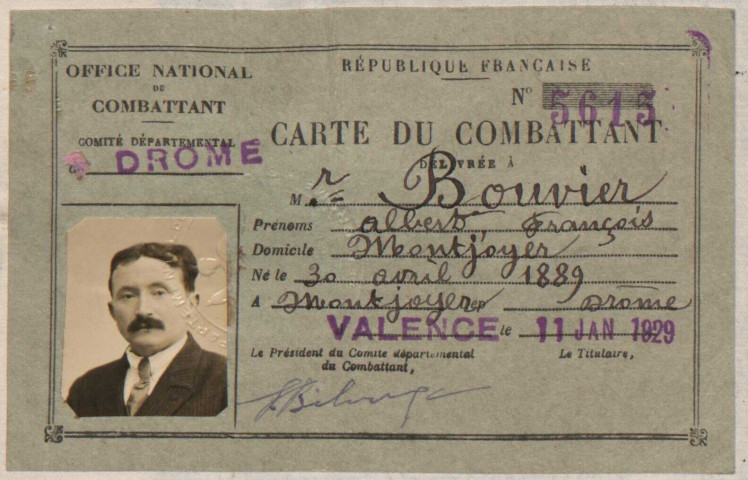 OFFICE NATIONAL
DU
COMBATTANT
COMITÉ DÉPARTEMENTAL
DROME
RÉPUBLIQUE FRANÇAISE
N° 5615
CARTE DU COMBATTANT
DÉLIVRÉE À
M. r Bouvier
Prénoms albert, François
Domicile Montjoyer
Né le 30 avril 1889
A Montjoyer Drôme
VALENCE le 11 JAN 1929
Le Président du Comité départemental
du Combattant,
Le Titulaire,